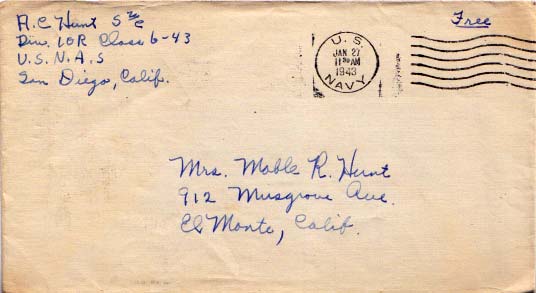 A.C Hunt S 2/C
Free
Div. 10R Class 6-43
U.S.N.A.S
San Diego, Calif.
U.S.
JAN 27
11 30 AM
1943
NAVY
Mrs. Mable R. Hunt
912 Musgrove Ave.
El Monte, Calif.